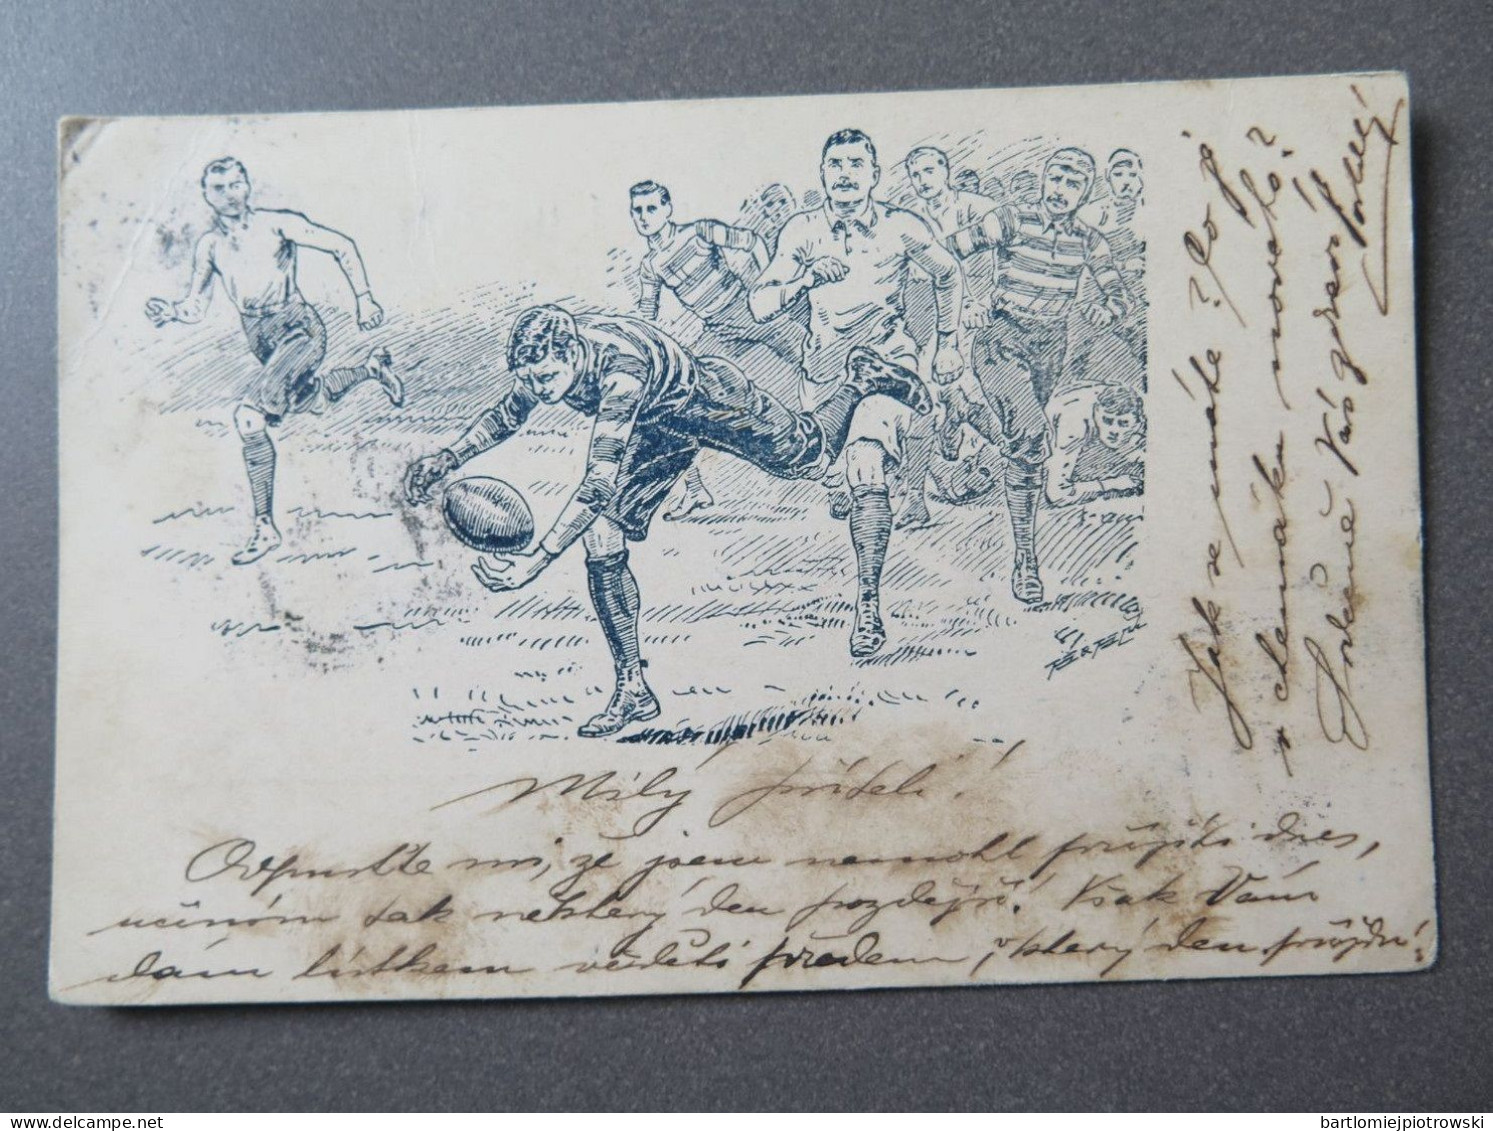 Milý příteli!
Odpusťte mi, že jsem nemohl přijíti dnes,
učiním tak některý den později! Však Vám
dám lístkem věděti předem, v který den přijdu!
Jak se máte? Co je
nového?
Srdečně Vás zdraví
delcampe.net
bartlomiejpiotrowski